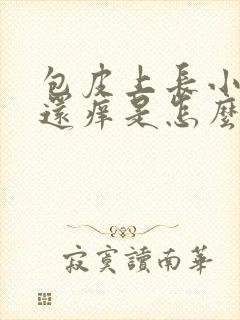 包皮上長小
還痒是怎麼
寂寞讀南華